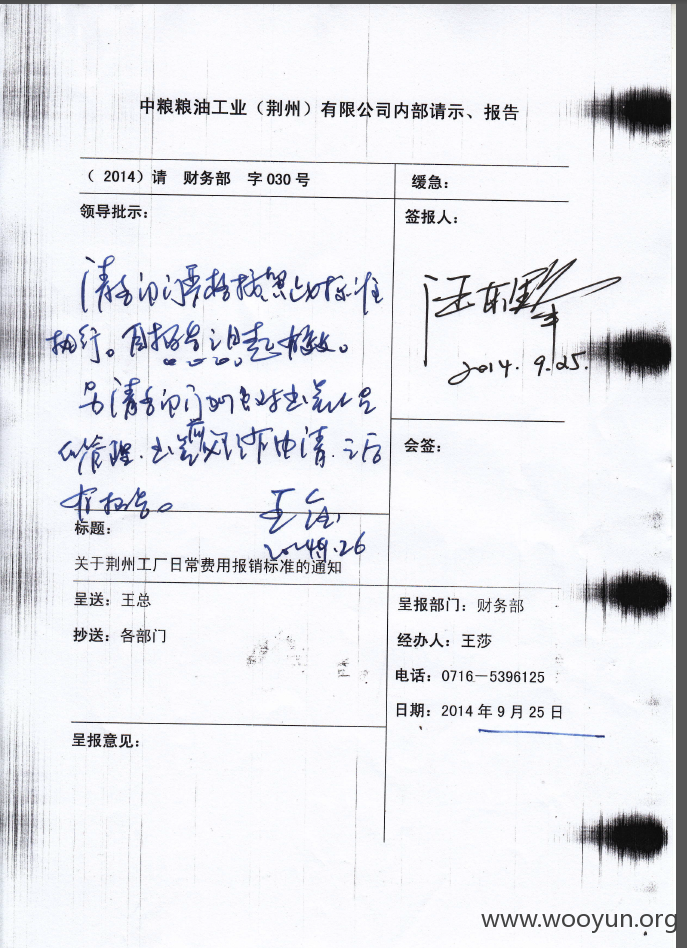 中粮粮油工业（荆州）有限公司内部请示、报告
（ 2014）请　财务部　字 030 号
缓急：
领导批示：
签报人：
请各部门严格按照此标准
执行。自报告之日起有效。
2014. 9.25.
另请各部门加强对出差人员
的管理.出差前必须先申请.之后
会签：
标题：
关于荆州工厂日常费用报销标准的通知
呈送：王总
呈报部门：财务部
抄送：各部门
经办人：王莎
电话：0716－5396125
日期：2014 年 9 月 25 日
呈报意见：
www.wooyun.org